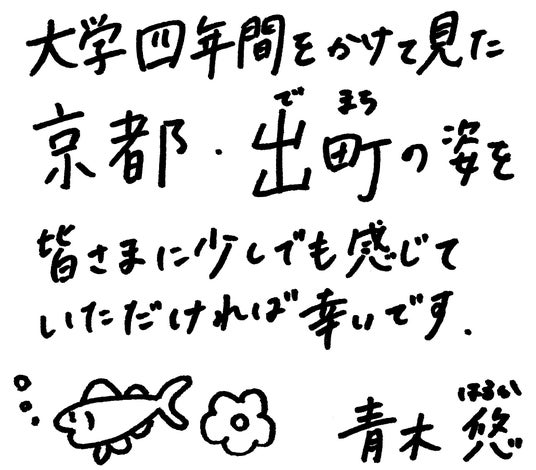 大学四年間をかけて見た
京都・出町の姿を
でまち
皆さまに少しでも感じて
いただければ幸いです.
青木 悠
はるか